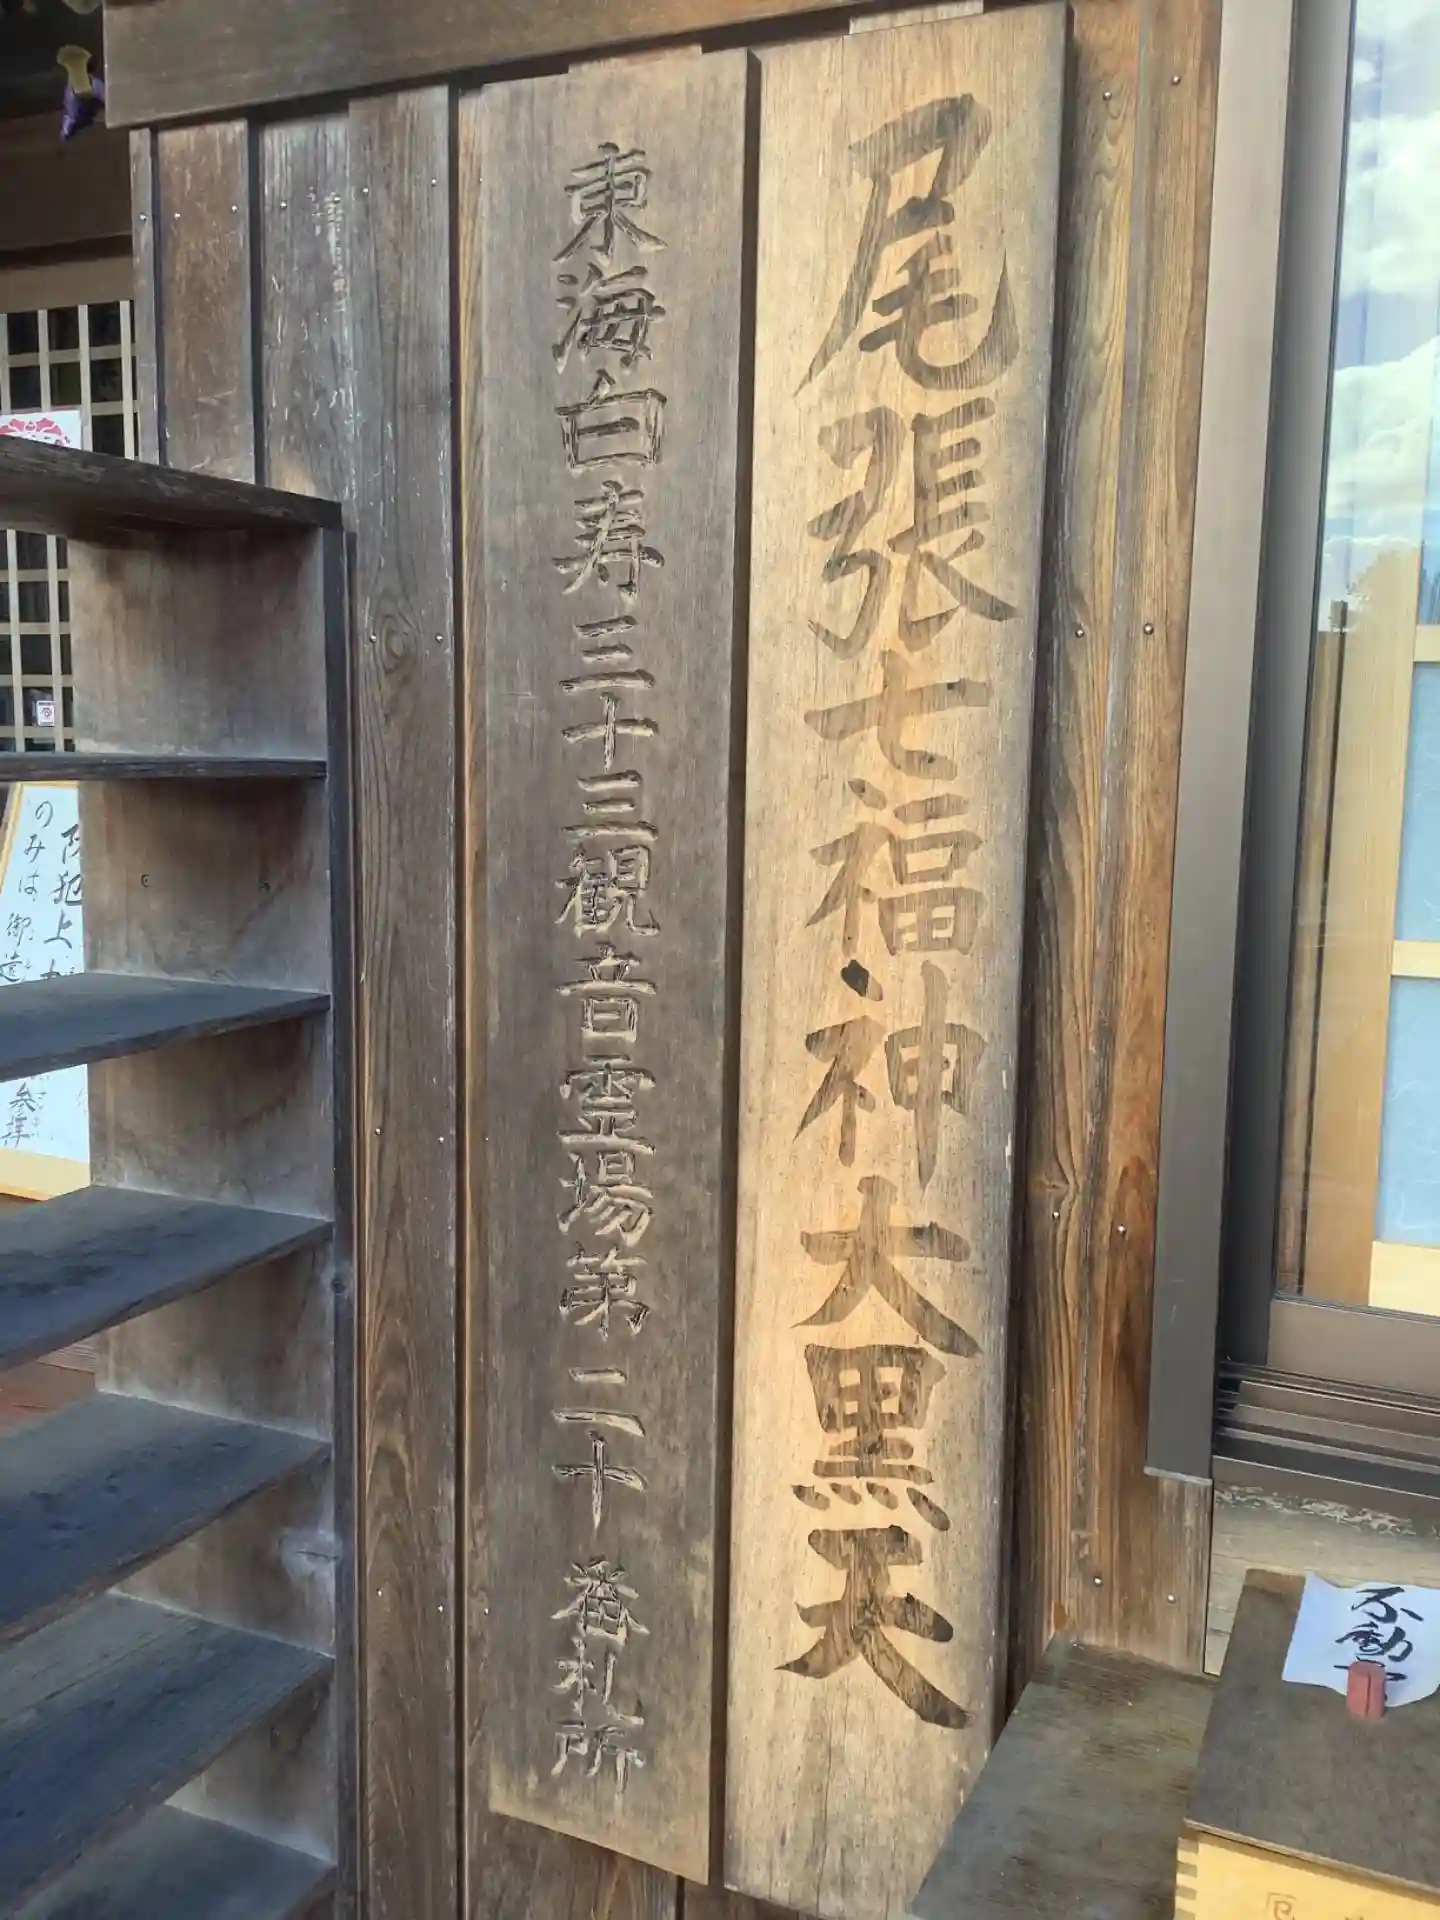 尾張七福神大黒天
東海白寿三十三観音霊場第二十番札所
防犯上
のみは御
参拝
不動